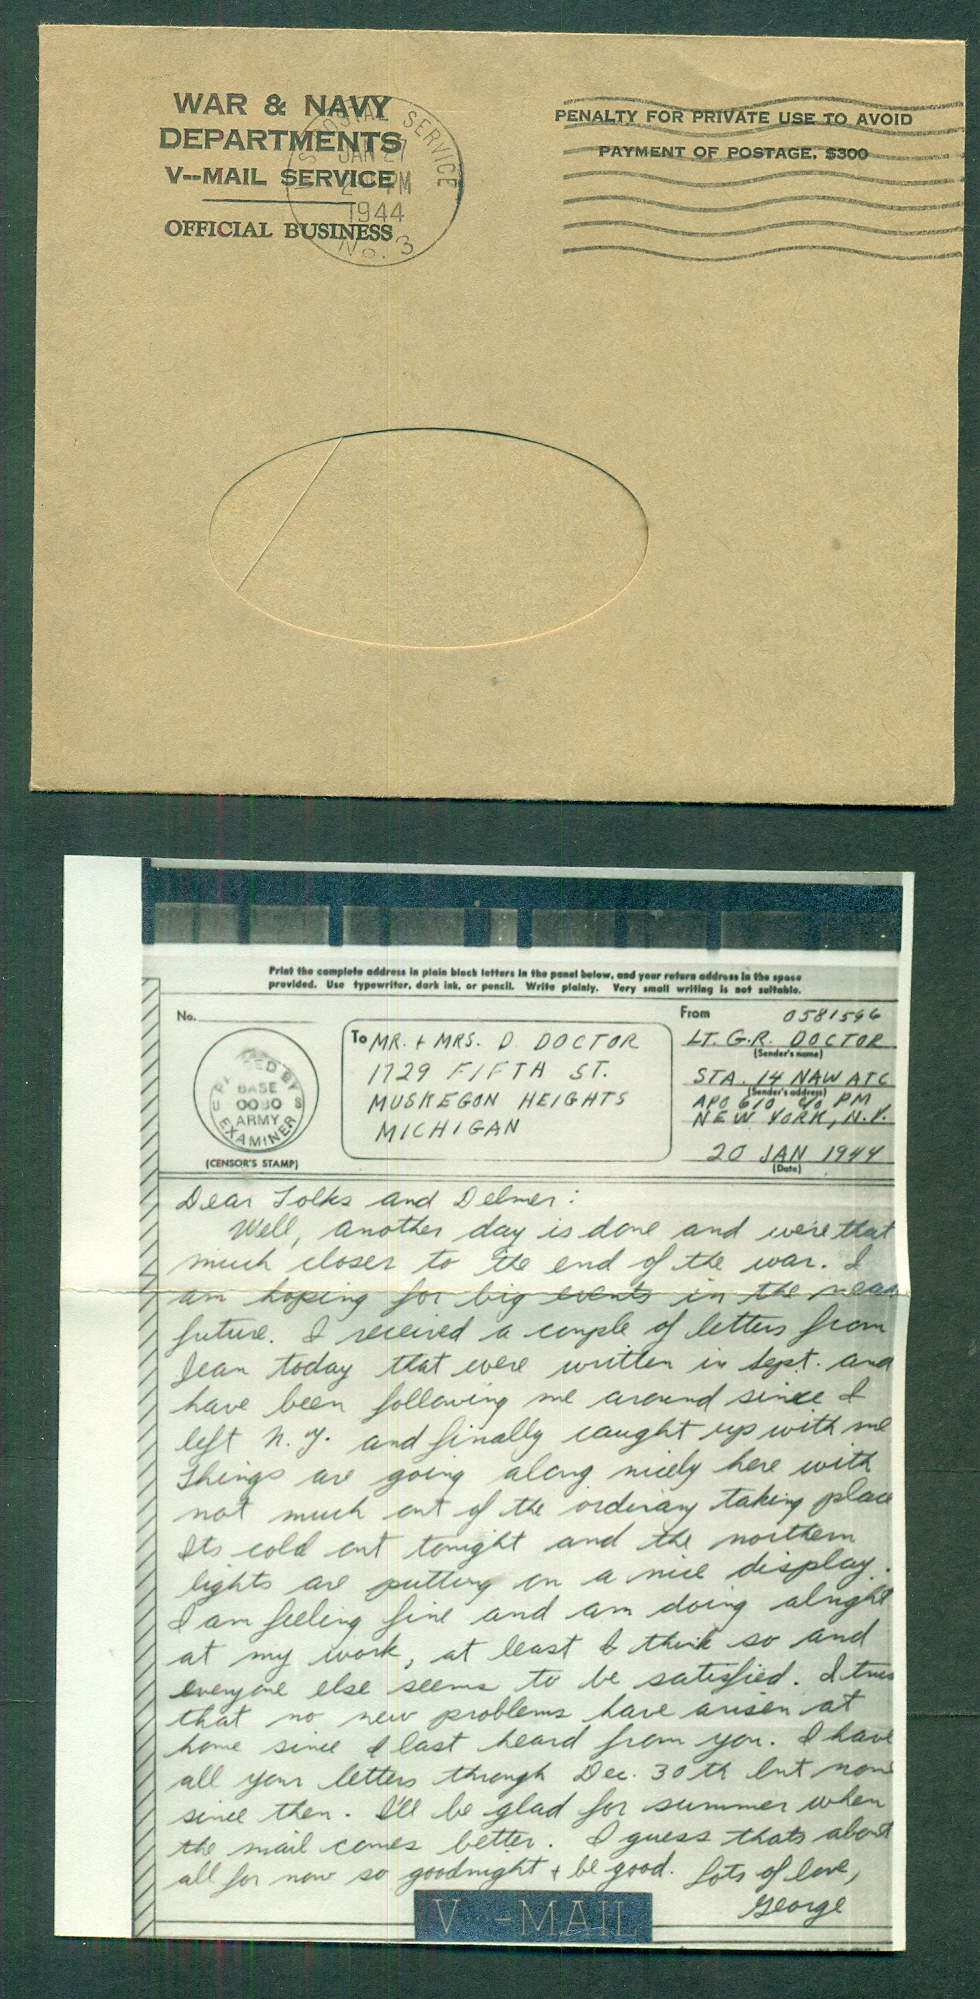 WAR & NAVY
DEPARTMENTS
V--MAIL SERVICE
OFFICIAL BUSINESS
POSTAL SERVICE
JAN 27
PM
1944
No. 3
PENALTY FOR PRIVATE USE TO AVOID
PAYMENT OF POSTAGE, $300
Print the complete address in plain block letters in the panel below, and your return address in the space
provided. Use typewriter, dark ink, or pencil. Write plainly. Very small writing is not suitable.
No.
PASSED BY
BASE
ARMY
EXAMINER
(CENSOR'S STAMP)
To MR. + MRS. D. DOCTOR
1729 FIFTH ST.
MUSKEGON HEIGHTS
MICHIGAN
From 0581596
LT. G.R. DOCTOR
(Sender's name)
STA. 14 NAW ATC
(Sender's address)
APO 610 c/o PM
NEW YORK, N.Y.
20 JAN 1944
(Date)
Dear Folks and Delmer:
Well, another day is done and we're that
much closer to the end of the war. I
am hoping for big events in the near
future. I received a couple of letters from
Jean today that were written in Sept. and
have been following me around since I
left N.Y. and finally caught up with me
Things are going along nicely here with
not much out of the ordinary taking place
Its cold out tonight and the northern
lights are putting on a nice display.
I am feeling fine and am doing alright
at my work, at least I think so and
everyone else seems to be satisfied. I trus
that no new problems have arisen at
home since I last heard from you. I have
all your letters through Dec. 30th but none
since then. I'll be glad for summer when
the mail comes better. I guess thats about
all for now so goodnight + be good. Lots of love,
George
V--MAIL